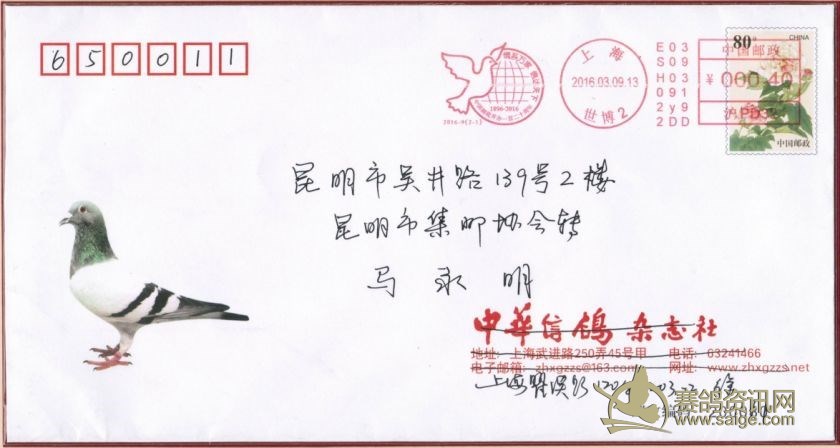 650011
80分 CHINA
中国邮政
中国邮政
1896-2016
2016-9(2-1)
上海
2016.03.09.13
世博2
E03
S09
H03
091
2y9
2DD
¥ 000.40
沪PD3
昆明市吴井路139号2楼
昆明市集邮协会转
马永明
中华信鸽杂志社
地址：上海武进路250弄45号甲 电话：63241466
电子邮箱：zhxgzzs@163.com 网址：www.zhxgzzs.net
上海
赛鸽资讯网
www.saige.com